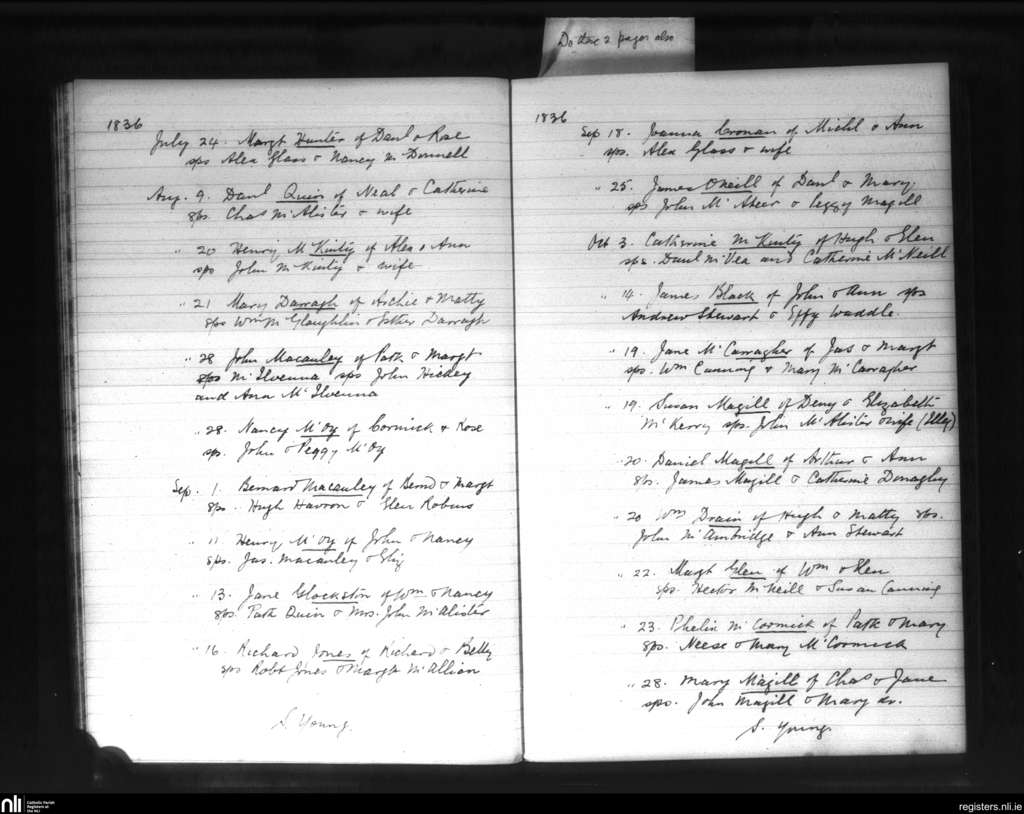 Do these 2 pages also
1836
July 24. Margt Hunter of Danl & Rose
sps Alex Glass & Nancy McDonnell
Aug. 9. Danl Quin of Neal & Catherine
sps. Chas McAlister & wife
" 20 Henry McKinty of Alex & Ann
sps John McKinty & wife
" 21 Mary Darragh of Archie & Matty
sps Wm McGlaughlin & Esther Darragh
" 28 John Macauley of Patk & Margt
sps McIlvenna sps John Hickey
and Ann McIlvenna
" 28. Nancy McOy of Cormick & Rose
sps. John & Peggy McOy
Sep. 1. Bernard Macauley of Bernd & Margt
sps. Hugh Havron & Elen Robins
" 11 Henry McOy of John & Nancy
sps. Jas. Macauley & Eliz
" 13. Jane Clockston of Wm & Nancy
sps. Patk Quin & Mrs. John McAlister
" 16. Richard Jones of Richard & Betty
sps Robt Jones & Margt McAllian
S. Young.
1836
Sep 18. Joanna Cronan of Michl & Ann
sps. Alex Glass & wife
" 25. James ONeill of Danl & Mary
sps John McAteer & Peggy Magill
Oct 3. Catherine McKinty of Hugh & Elen
sps. Danl McVea and Catherine McNeill
" 14. James Black of John & Ann sps
Andrew Stewart & Effy Waddle.
" 19. Jane McCarragher of Jas & Margt
sps. Wm Cunning & Mary McCarragher
" 19. Susan Magill of Deny & Elizabeth
McKerry sps. John McAlister & wife (Illy)
" 20. Daniel Magill of Arthur & Ann
sps. James Magill & Catherine Donaghy
" 20 Wm Drain of Hugh & Matty sps.
John McAmbridge & Ann Stewart
" 22. Margt Glen of Wm & Elen
sps. Hector McNeill & Susan Cunning
" 23. Phelix McCormick of Patk & Mary
sps. Neese & Mary McCormick
" 28. Mary Magill of Chas & Jane
sps. John Magill & Mary do.
S. Young.
nli
Catholic Parish
Registers at
the NLI
registers.nli.ie